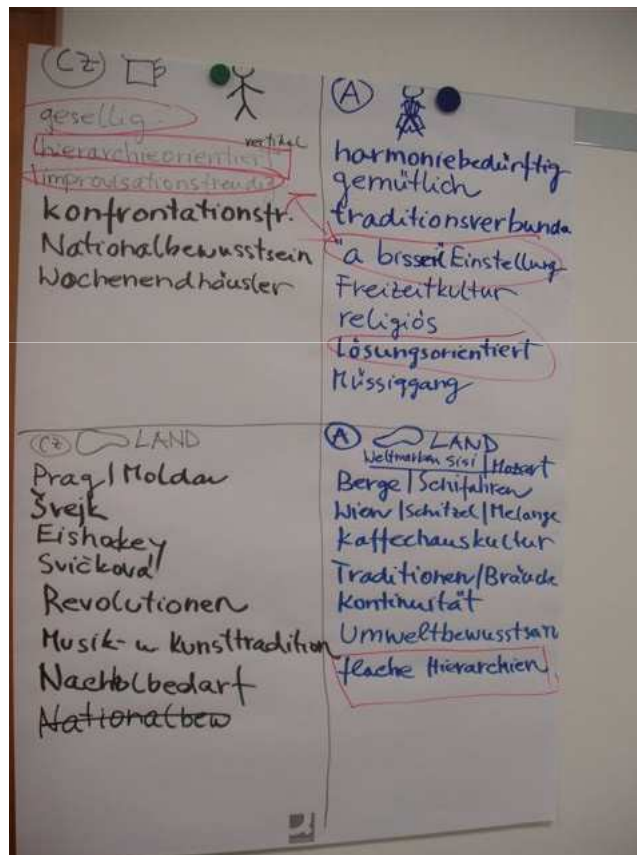 CZ
gesellig
vertikal
hierarchieorientiert
improvisationsfreudig
konfrontationsfr.
Nationalbewusstsein
Wochenendhäusler
A
harmoniebedürftig
gemütlich
traditionsverbunde
"a bisserl Einstellung
Freizeitkultur
religiös
Lösungsorientiert
Müssiggang
CZ LAND
Prag/Moldau
Švejk
Eishokey
Svíčková
Revolutionen
Musik- u Kunsttradition
Nachholbedarf
Nationalbew
A LAND
Weltmarken Sisi | Mozart
Berge | Schifahren
Wien | Schitzel | Melange
Kaffeehauskultur
Traditionen/Bräuche
Kontinuität
Umweltbewusstsein
flache Hierarchien